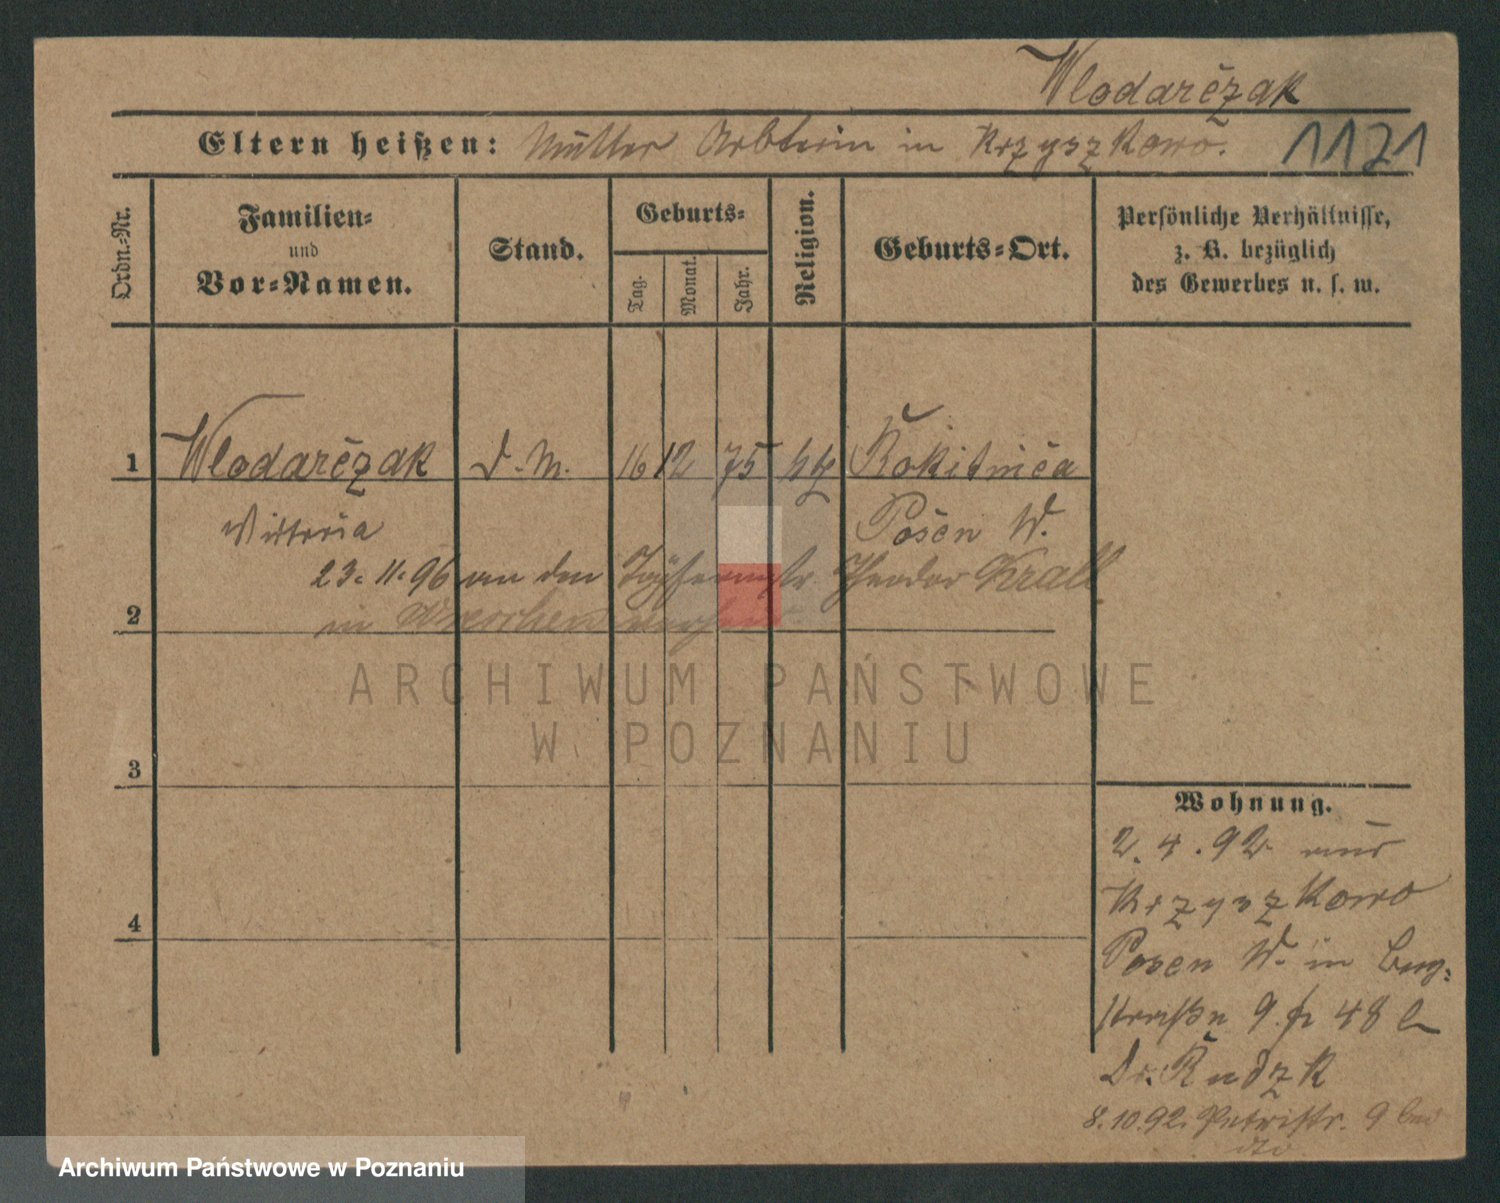 Wlodarczak
Eltern heißen: Mutter Arbterin in Krzyszkowo. 1121
Ordn.-Nr.
Familien-
und
Vor-Namen.
Stand.
Geburts-
Tag.
Monat.
Jahr.
Religion.
Geburts-Ort.
Persönliche Verhältnisse,
z. B. bezüglich
des Gewerbes u. s. w.
1 Wlodarczak D. M. 16 12 75 kth Rokitnica
Viktoria Posen W.
23.11.96 an den Theodor Krall
2 in
3
4
Wohnung.
2.4.92 aus
Krzyszkowo
Posen W. in Berg-
straße 9. 48 b
Dr. Rudzk
8.10.92. Petristr. 9 bei
dto
ARCHIWUM PAŃSTWOWE
W POZNANIU
Archiwum Państwowe w Poznaniu